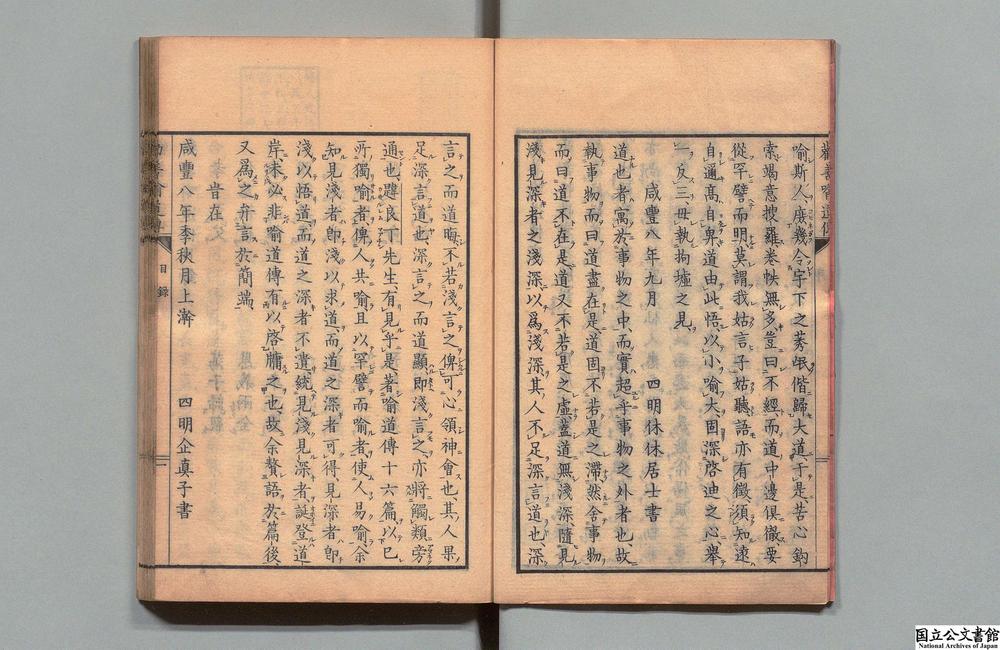 喻斯人庶幾令宇下之莠氓偕歸大道于是苦心鉤
索竭意搜羅卷帙無多豈曰不經而道中邊俱徹要
從罕譬而明莫謂我姑言子姑聽語亦有徵須知遠
自邇高自卑道由此悟以小喻大固深啓迪之心舉
一反三毋執拘墟之見
咸豐八年九月 四明休休居士書
道也者寓於事物之中而實超乎事物之外者也故
執事物而曰道盡在是道固不若是之滯然舍事物
而曰道不在是道又不若是之虛蓋道無淺深隨見
淺見深者之淺深以爲淺深其人不足深言道也深
言之而道晦不若淺言之俾可心領神會也其人果
足深言道也深言之而道顯即淺言之亦將觸類旁
通也韙良丁先生有見乎是著喻道傳十六篇以己
所獨喻者俾人共喻且以罕譬而喻者使人易喻余
知見淺者卽淺以求道而道之深者可得見深者卽
淺以悟道而道之深者不遺統見淺見深者誕登道
岸未必非喻道傳有以啓牖之也故余贅語於篇後
又爲之弁言於簡端
咸豐八年季秋月上澣 四明企真子書
目錄
一
国立公文書館
National Archives of Japan